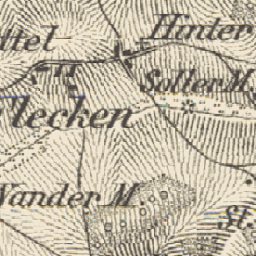 ttel
Hinter
en
Soller M.
lecken
Wander M
St.